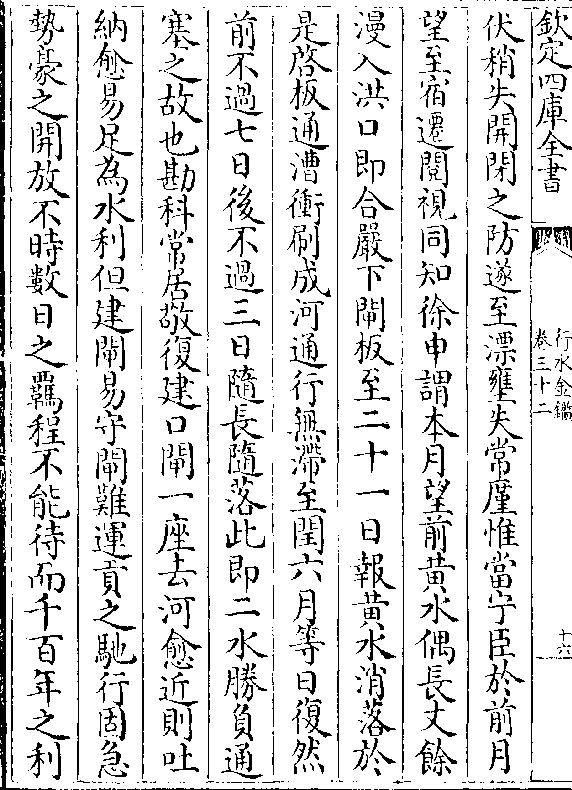 欽定四庫全書
行水金鑑
卷三十二
十六
伏稍失開閉之防遂至漂壅失常廑惟當宁臣於前月
望至宿遷閱視同知徐申謂本月望前黄水偶長丈餘
漫入洪口即合嚴下閘板至二十一日報黄水消落於
是啓板通漕衝刷成河通行無滯至閏六月等日復然
前不過七日後不過三日隨長隨落此即二水勝負通
塞之故也勘科常居敬復建口閘一座去河愈近則吐
納愈易足為水利但建閘易守閘難運貢之馳行固急
勢豪之開放不時數日之羈程不能待而千百年之利